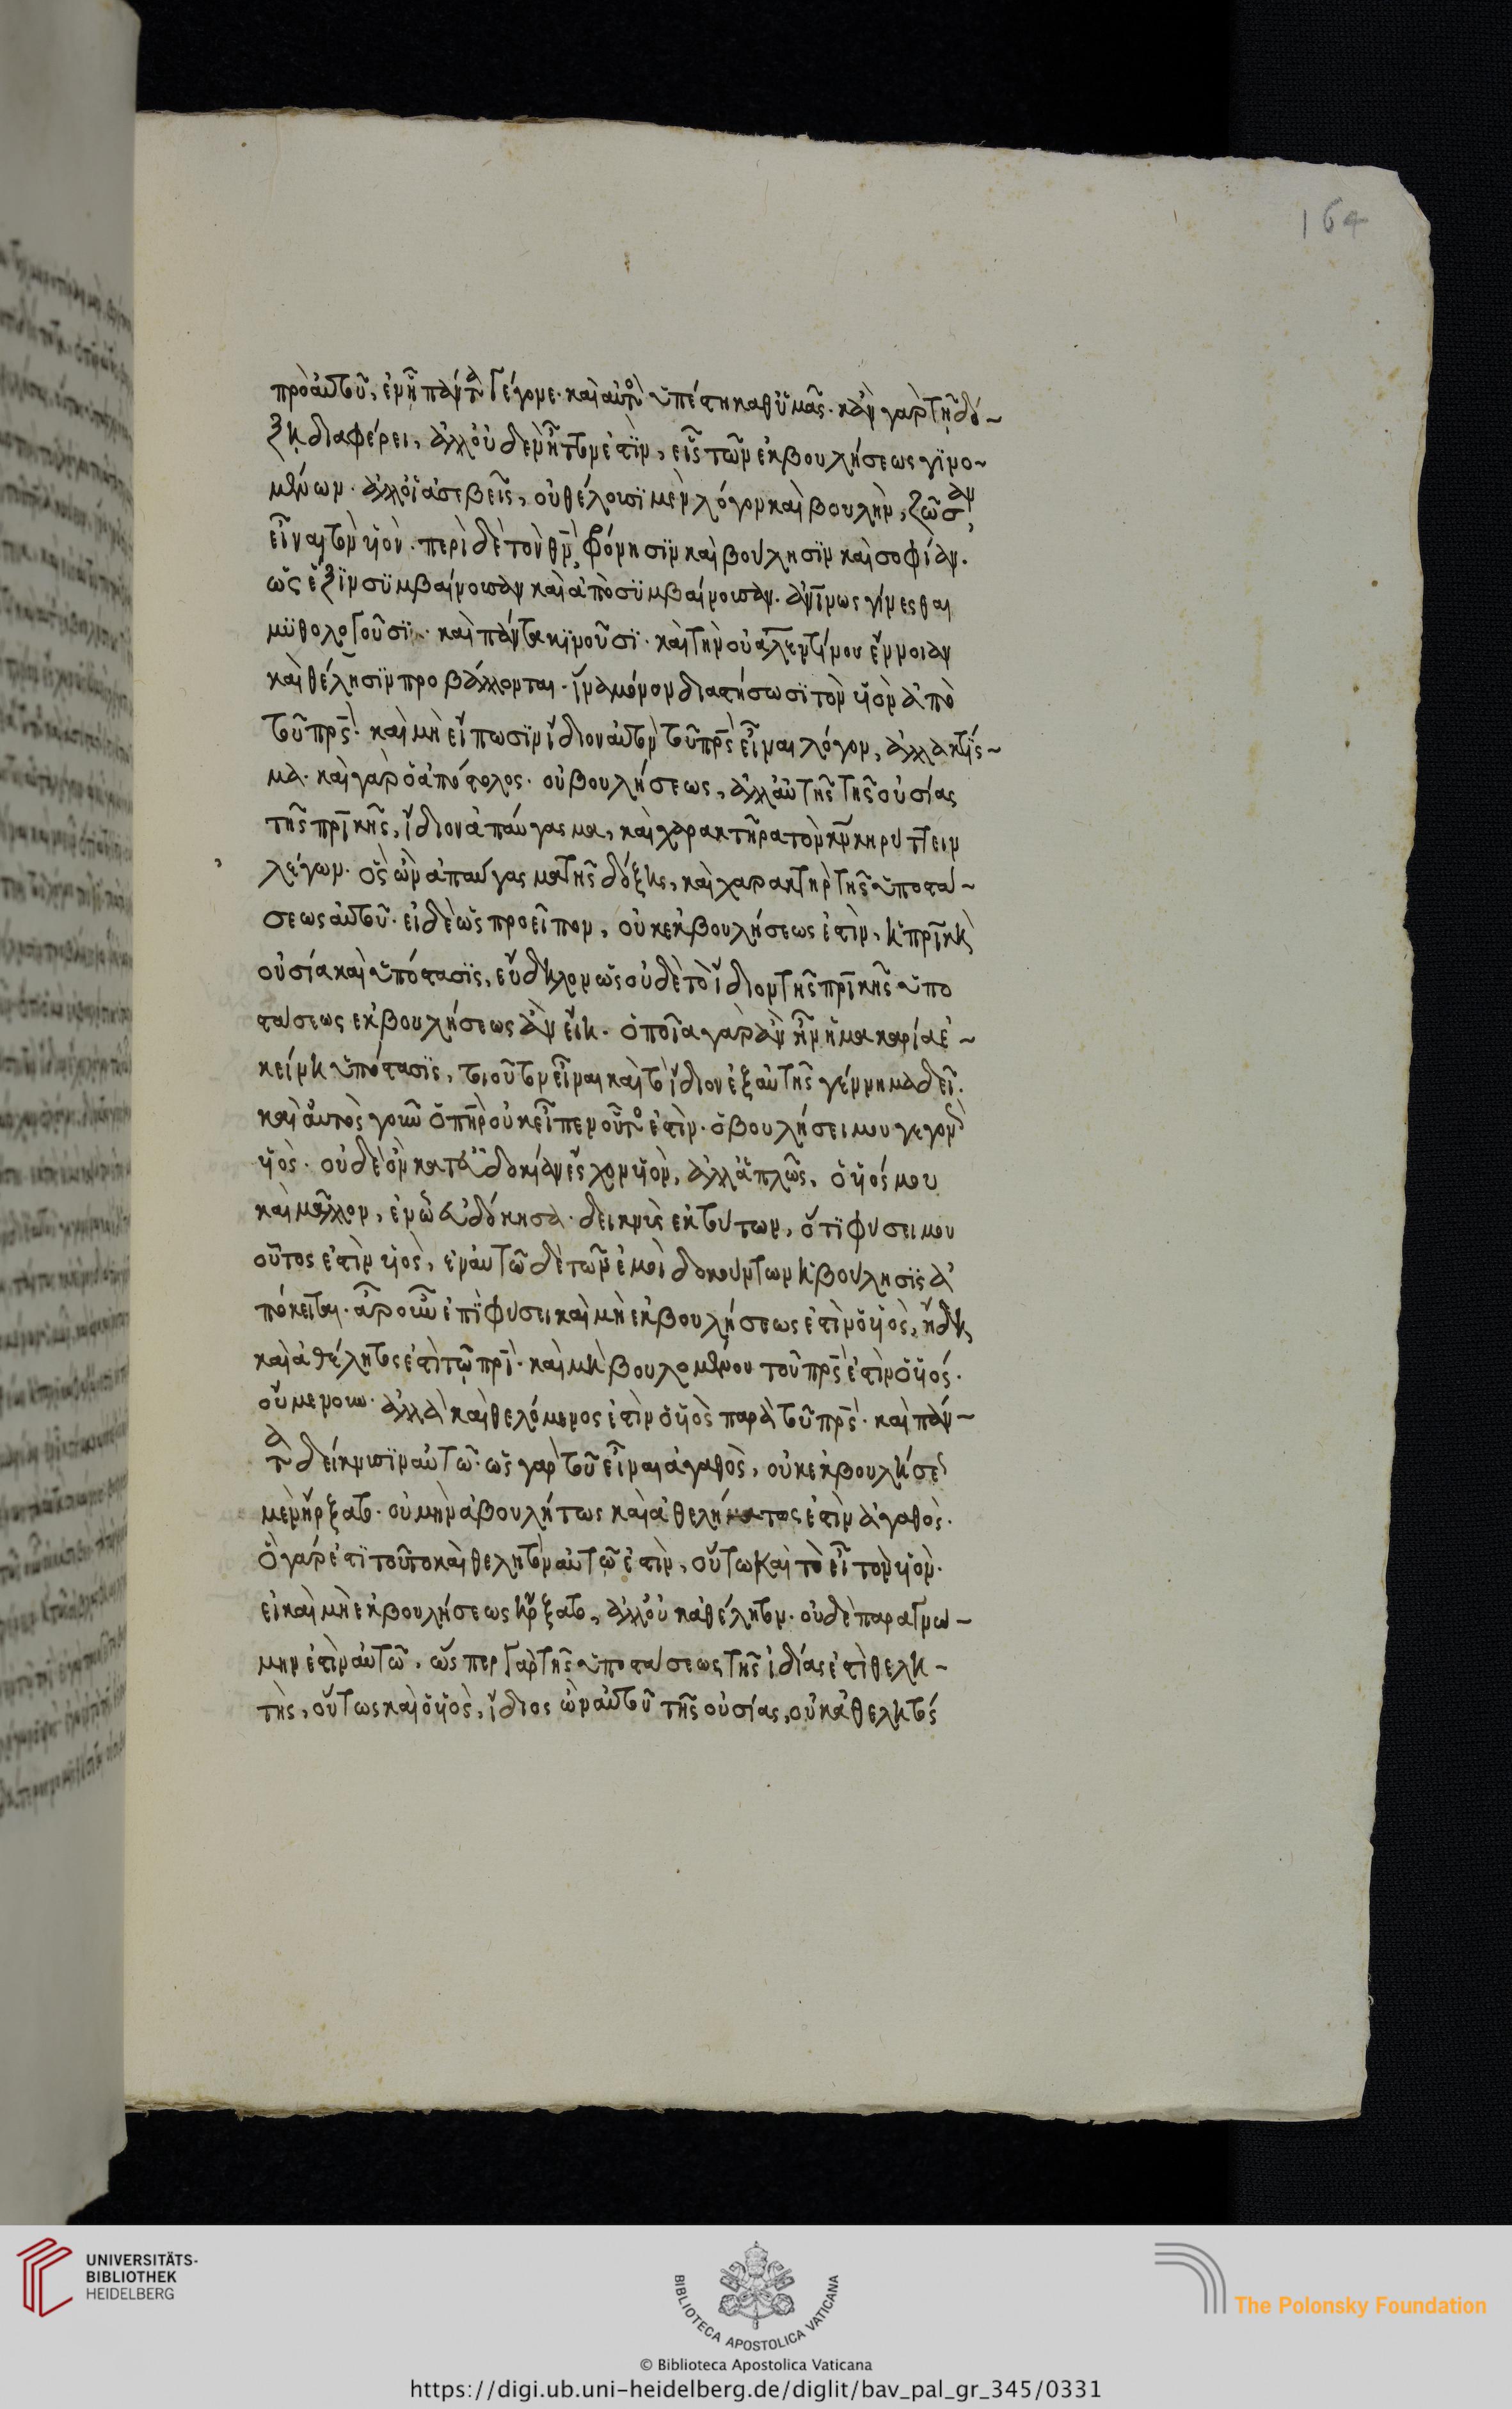 πρὸ αὐτοῦ, ἐν ἧ πάντα γέγονε· καὶ αὐτὸς ὑπέστη καθ ὑμᾶς· κἂν γὰρ τῆ δό-
ξη διαφέρει, ἀλλ οὐδὲν ἧττον ἐστὶν, εἷς τῶν ἐκ βουλήσεως γινο-
μένων· ἀλλ οἱ ἀσεβεῖς, οὐ θέλουσι μὲν λόγον καὶ βουλὴν, ζῶσαν
εἶναι τὸν υἱόν· περὶ δὲ τὸν θν, φρόνησιν καὶ βούλησιν καὶ σοφίαν·
ὡς ἕξιν συμβαίνουσαν καὶ ἀποσυμβαίνουσαν· ἀνινως γίνεσθαι
μυθολογοῦσι· καὶ πάντα κινοῦσι· καὶ τὴν οὐαλεντίνου ἔννοιαν
καὶ θέλησιν προβάλλονται· ἵνα μόνον διαστήσωσι τὸν υἱὸν ἀπὸ
τοῦ πρς· καὶ μὴ εἴπωσιν ἴδιον αὐτὸν τοῦ πρς εἶναι λόγον, ἀλλα κτίσ-
μα· καὶ γὰρ ὁ ἀπόστολος· οὐ βουλήσεως, ἀλλ αὐτῆς τῆς οὐσίας
τῆς πρικῆς, ἴδιον ἀπαύγασμα, καὶ χαρακτῆρα τὸν κν κηρύττειν
λέγων· ὃς ὢν ἀπαύγασμα τῆς δόξης, καὶ χαρακτὴρ τῆς ὑποστά-
σεως αὐτοῦ· εἰ δὲ ὡς προεῖπον, οὐκ ἐκ βουλήσεως ἐστὶν, ἡ πρικὴ
οὐσία καὶ ὑπόστασις, εὔδηλον ὡς οὐδὲ τὸ ἴδιον τῆς πρικῆς ὑπο
στάσεως ἐκ βουλήσεως ἂν εἴη· ὁποία γὰρ ἂν ἦν ἡ μακαρία ἐ-
κείνη ὑπόστασις, τοιοῦτον εἶναι καὶ τὸ ἴδιον ἐξ αὐτῆς γέννημα δεῖ·
καὶ αὐτὸς γοῦν ὁ πὴρ οὐκ εἶπεν οὗτος ἐστὶν· ὁ βουλήσει μου γεγονὼς
υἱὸς· οὐδὲ ὃν κατ εὐδοκίαν ἔσχον υἱὸν, ἀλλ ἁπλῶς, ὁ υἱός μου
καὶ μᾶλλον, ἐν ὧ εὐδόκησα· δεικνὺς ἐκ τούτων, ὅτι φύσει μου
οὗτος ἐστὶν υἱὸς, ἐν αὐτῶ δὲ τῶν ἐμοὶ δοκούντων ἡ βούλησις ἀ
πόκειται· ἆρ οὖν ἐπὶ φύσει καὶ μὴ ἐκ βουλήσεως ἐστὶν ὁ υἱὸς, ἤδη
καὶ ἀθέλητος ἐστὶ τῶ πρὶ· καὶ μὴ βουλομένου τοῦ πρς ἐστὶν ὁ υἱός·
οὔμενουν· ἀλλὰ καὶ θελόμενος ἐστὶν ὁ υἱὸς παρὰ τοῦ πρς· καὶ πάν-
τα δείκνυσιν αὐτῶ· ὡς γὰρ τοῦ εἶναι ἀγαθὸς, οὐκ ἐκ βουλήσεως
μὲν ἤρξατο· οὐ μὴν ἀβουλήτως καὶ ἀθελήτως ἐστὶν ἀγαθὸς·
ὃ γάρ ἐστι τοῦτο καὶ θελητὸν αὐτῶ ἐστὶν, οὕτω καὶ τὸ εἶ τὸν υἱὸν·
εἰ καὶ μὴ ἐκ βουλήσεως ἤρξατο, ἀλλ οὐκ ἀθέλητον· οὐδὲ παρα γνώ-
μην ἐστὶν αὐτῶ, ὥσπερ γὰρ τῆς ὑποστάσεως τῆς ἰδίας ἐστὶ θελη-
τὴς, οὕτως καὶ ὁ υἱὸς, ἴδιος ὢν αὐτοῦ τῆς οὐσίας, οὐκ ἀθελητός
164
UNIVERSITÄTS-
BIBLIOTHEK
HEIDELBERG
BIBLIOTECA APOSTOLICA VATICANA
The Polonsky Foundation
© Biblioteca Apostolica Vaticana
https://digi.ub.uni-heidelberg.de/diglit/bav_pal_gr_345/0331